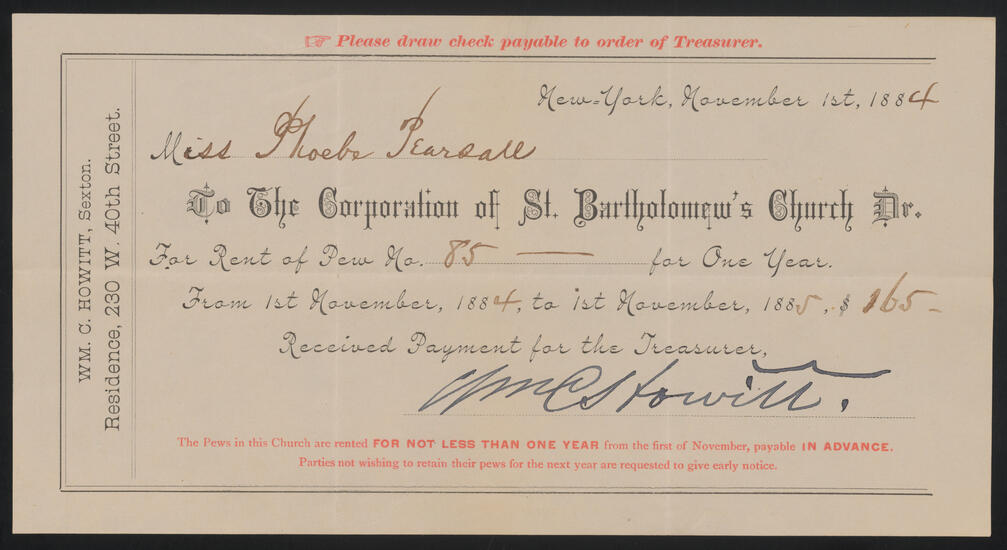 ☞ Please draw check payable to order of Treasurer.
New-York, November 1st, 1884
Miss Phoebe Pearsall
To The Corporation of St. Bartholomew's Church Dr.
For Rent of Pew No. 85 — for One Year.
From 1st November, 1884, to 1st November, 1885, $ 165-
Received Payment for the Treasurer,
Wm C Howitt.
The Pews in this Church are rented FOR NOT LESS THAN ONE YEAR from the first of November, payable IN ADVANCE.
Parties not wishing to retain their pews for the next year are requested to give early notice.
WM. C. HOWITT, Sexton.
Residence, 230 W. 40th Street.